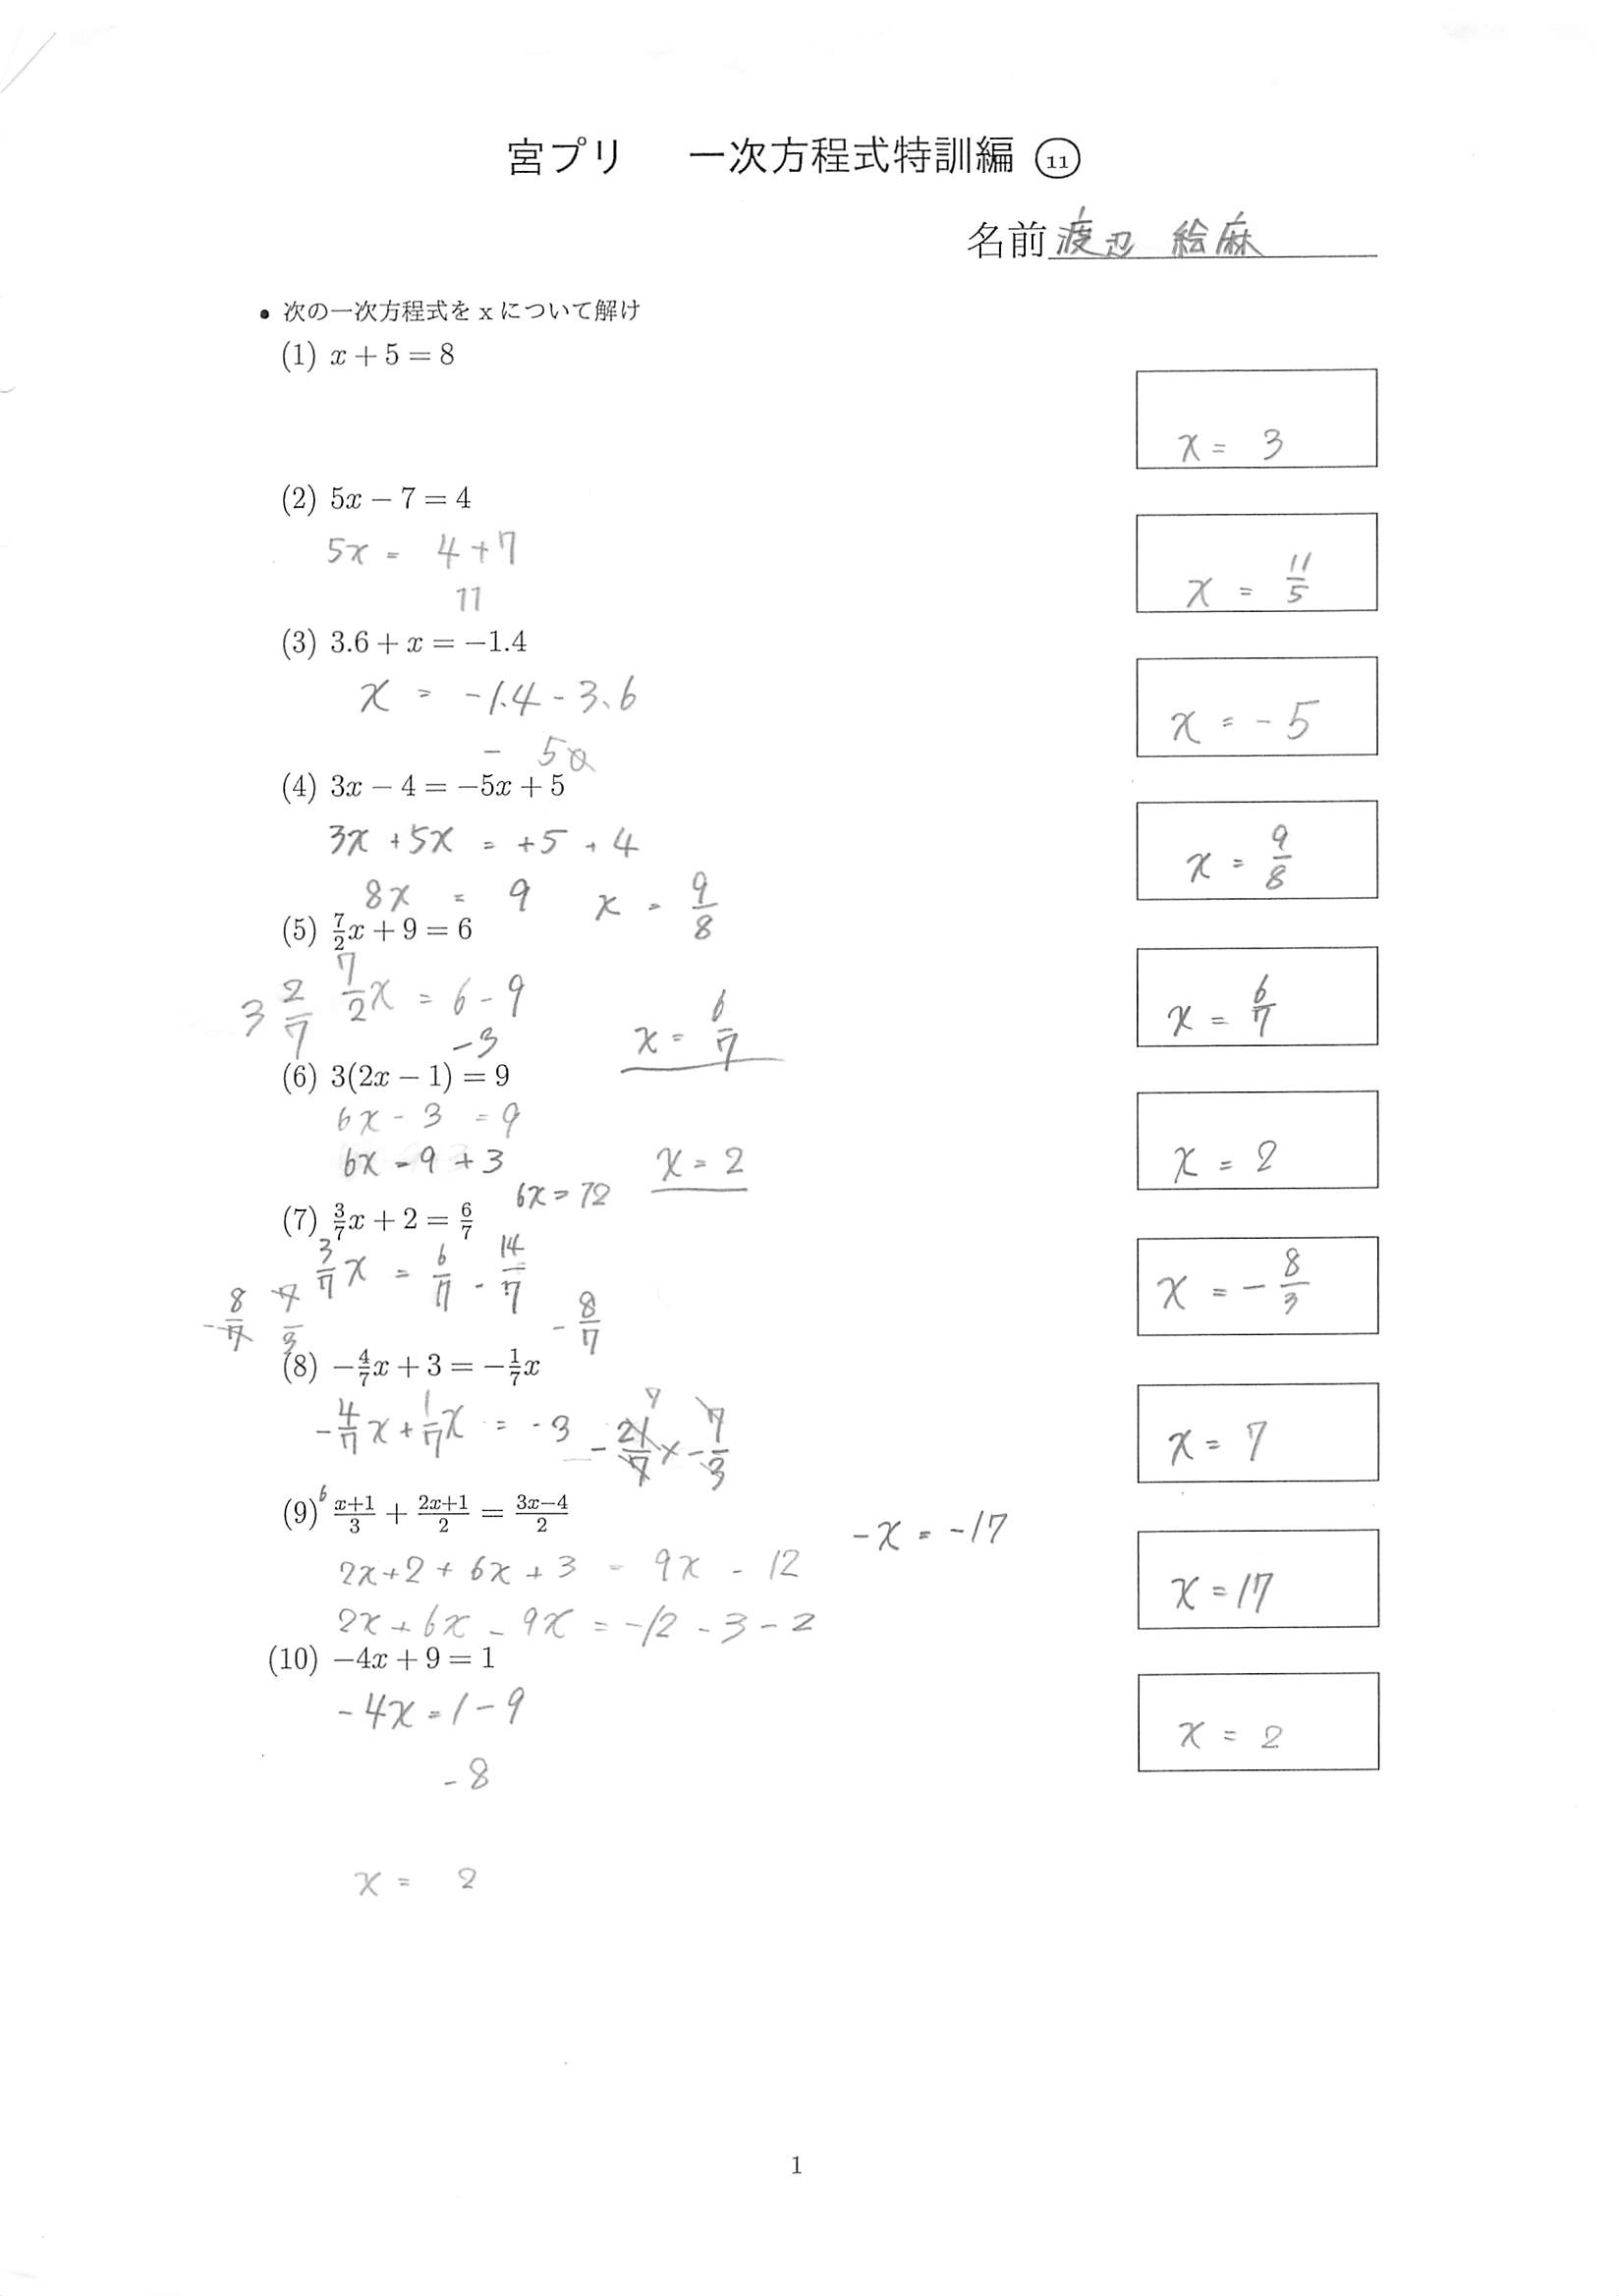 宮プリ 一次方程式特訓編 ⑪
名前 渡辺 絵麻
• 次の一次方程式を x について解け
(1) x + 5 = 8
x = 3
(2) 5x − 7 = 4
5x = 4 + 7
11
x = 11/5
(3) 3.6 + x = −1.4
x = -1.4 - 3.6
- 5.0
x = - 5
(4) 3x − 4 = −5x + 5
3x + 5x = +5 + 4
8x = 9 x = 9/8
x = 9/8
(5) 7/2 x + 9 = 6
3 2/7 7/2 x = 6 - 9
-3
x = 6/7
x = 6/7
(6) 3(2x − 1) = 9
6x - 3 = 9
6x = 9 + 3
6x = 12
x = 2
x = 2
(7) 3/7 x + 2 = 6/7
3/7 x = 6/7 - 14/7
-8/7 7/3
- 8/7
x = - 8/3
(8) −4/7 x + 3 = −1/7 x
-4/7 x + 1/7 x = -3
- 21/7 × - 7/3
7
x = 7
(9) (x+1)/3 + (2x+1)/2 = (3x−4)/2
6
2x + 2 + 6x + 3 = 9x - 12
2x + 6x - 9x = -12 - 3 - 2
-x = -17
x = 17
(10) −4x + 9 = 1
-4x = 1 - 9
- 8
x = 2
x = 2
1